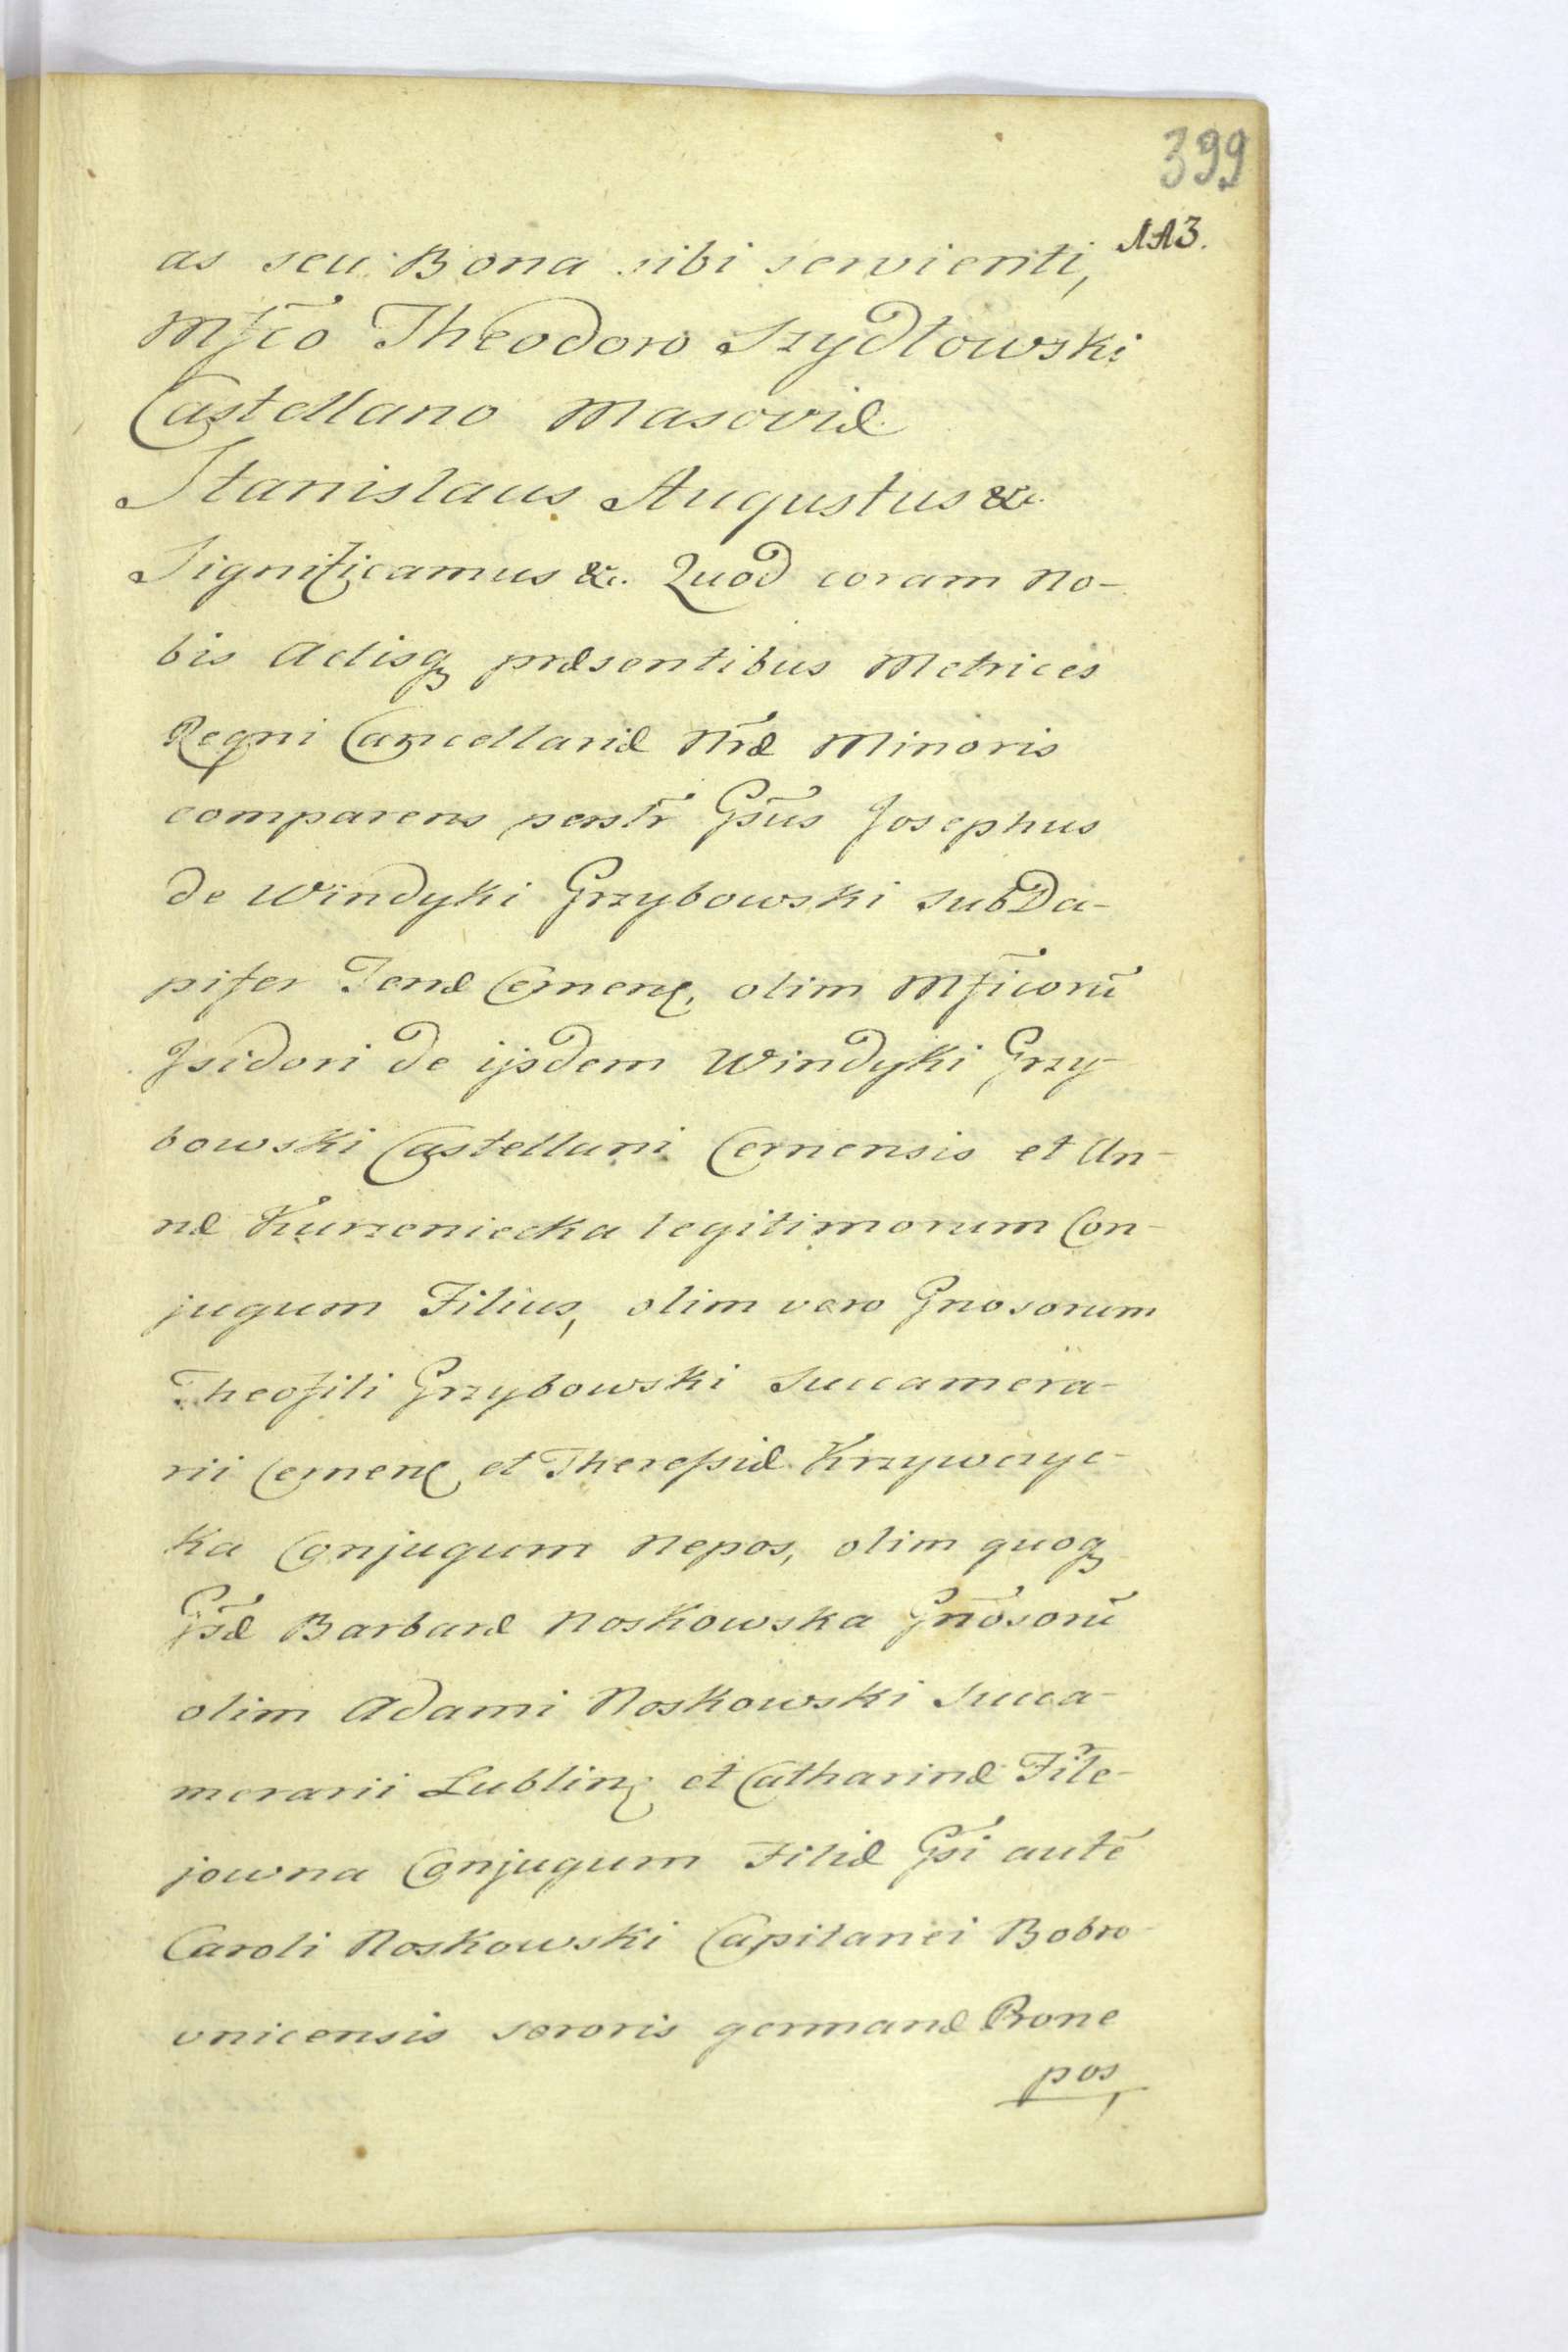 399
AA3.
as seu Bona sibi servienti,
Mfco Theodoro Szydłowski
Castellano Masoviæ
Stanislaus Augustus &c.
Significamus &c. Quod coram No-
bis Actisq præsentibus Metrices
Regni Cancellariæ Nræ Minoris
comparens persłr Gsus Josephus
de Windyki Grzybowski SubDa-
pifer Terræ Cernenς, olim Mficorū
Isidori de ijsdem Windyki Grzy-
bowski Castellani Cernensis et An-
næ Kurzeniecka legitimorum Con-
jugum Filius, olim vero Gnosorum
Theofili Grzybowski Succamera-
rii Cernenς et Theressiæ Krzywczyc-
ka Conjugum Nepos, olim quoq
Gsæ Barbaræ Noskowska Gnōsorū
olim Adami Noskowski Succa-
merarii Lublinς et Catharinæ File-
jowna Conjugum Filiæ Gsi autē
Caroli Noskowski Capitanei Bobro-
vnicensis sororis germanæ Prone
pos